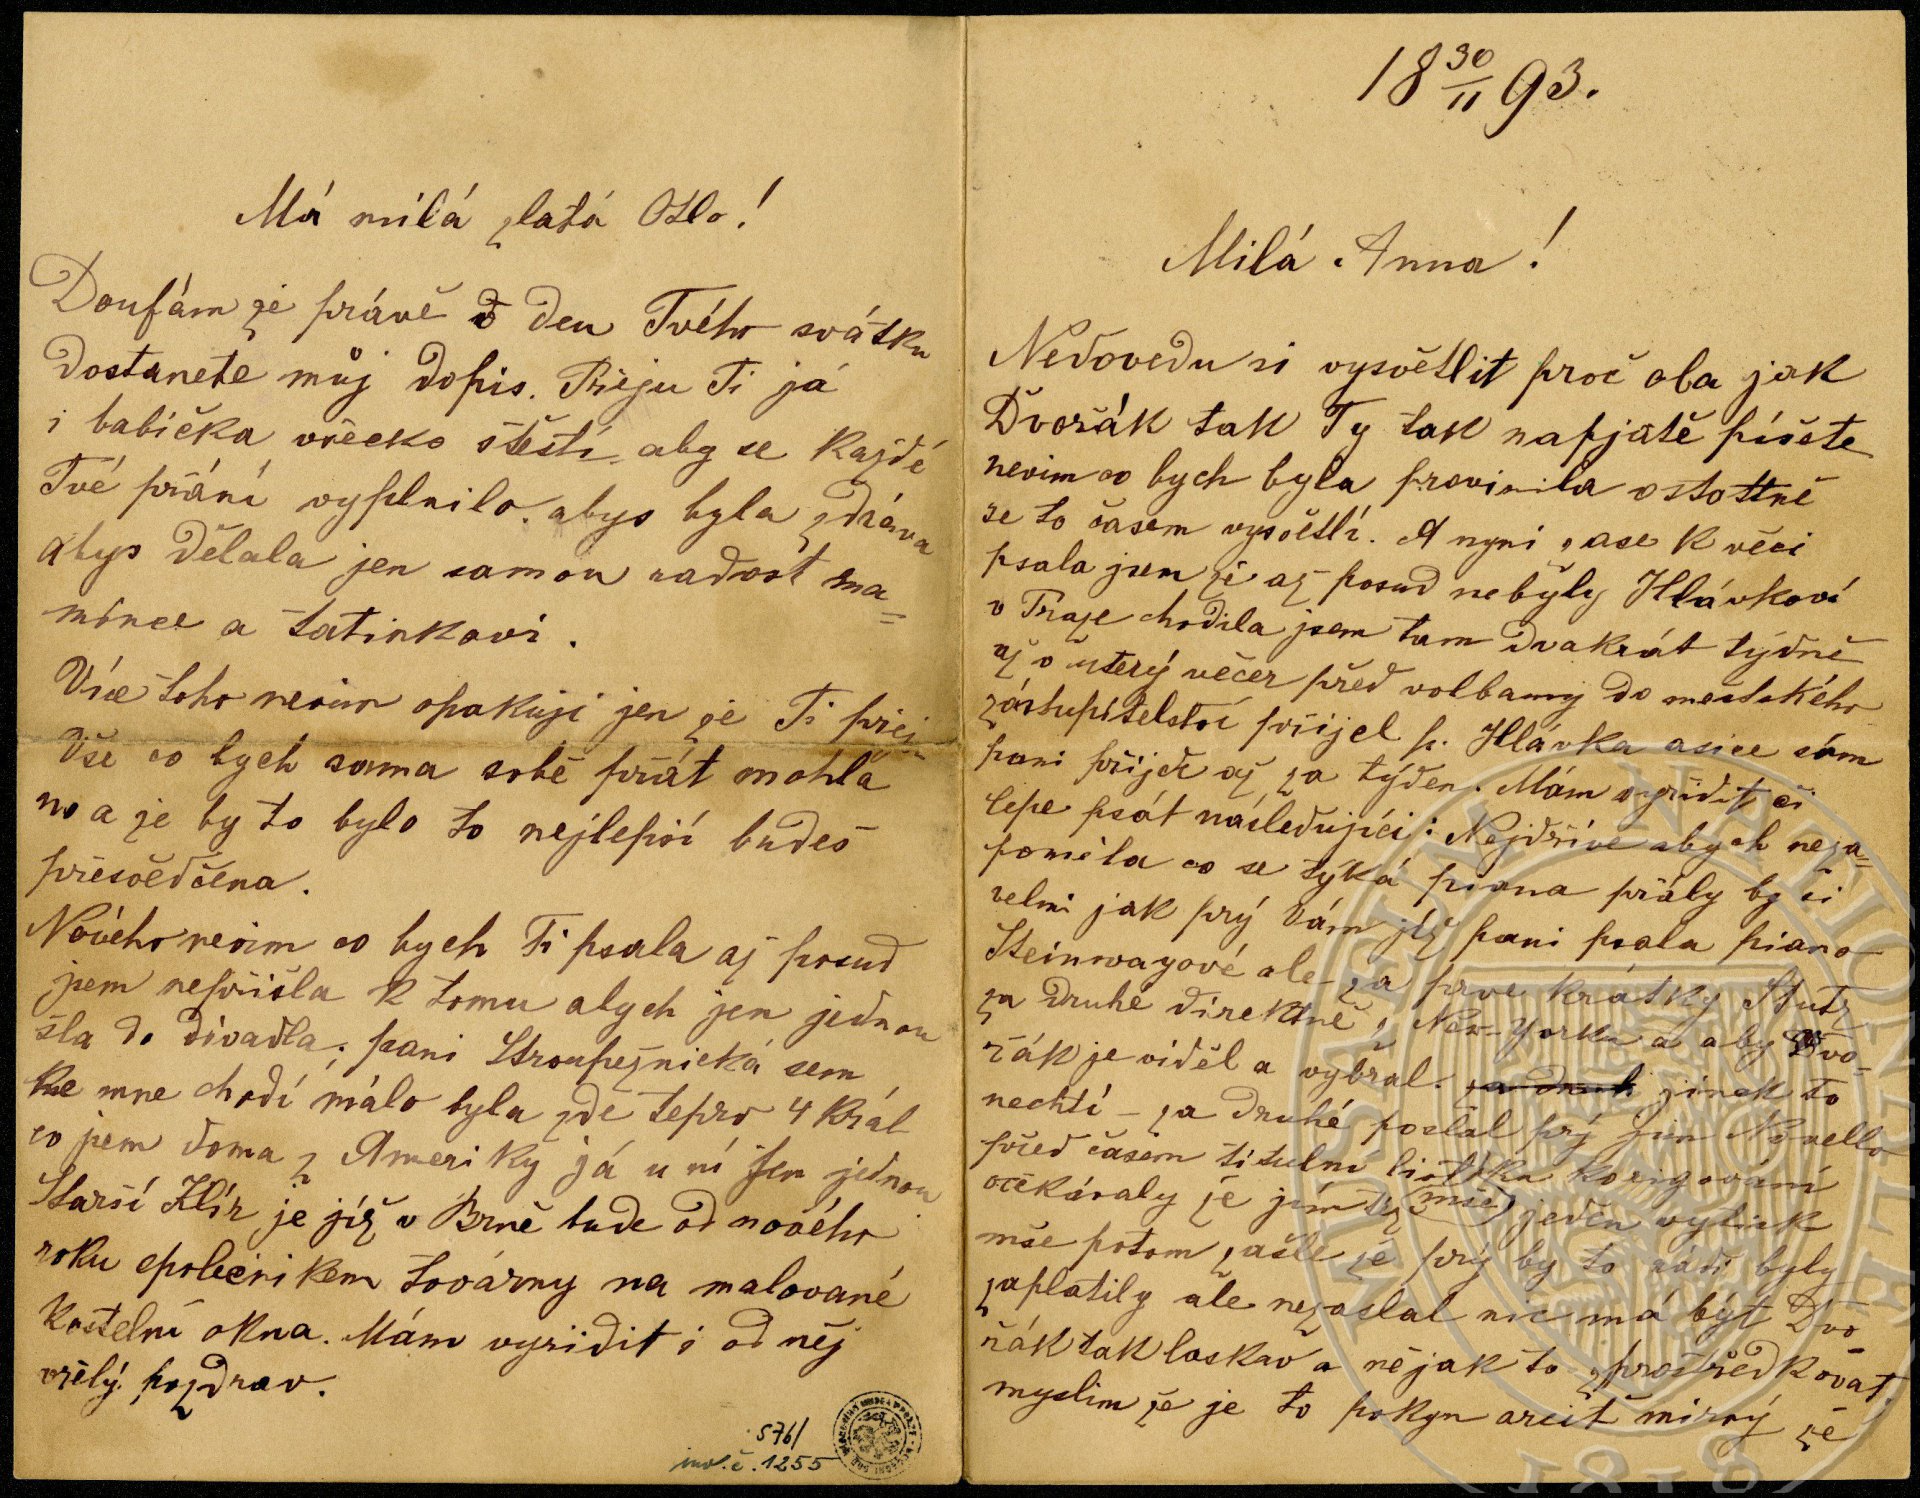 Má milá zlatá Otlo!
Doufám že právě v den Tvého svátku
dostanete můj dopis. Přeju Ti já
i babička všecko štěstí aby se každé
Tvé přání vyplnilo. abys byla zdráva
abys dělala jen samou radost ma=
mince a tatinkovi.
Více toho nevim opakuji jen že Ti přeji
Vše co bych sama sobě přát mohla
no a že by to bylo to nejlepší budeš
přesvědčena.
Nového nevim co bych Ti psala až posud
jsem nepřišla k tomu abych jen jednou
šla do divadla; pani Stroupežnická sem
ke mne chodí málo byla zde teprv 4 krát
co jsem doma z Ameriky já u ní jen jednou
Starší Klír je již v Brně bude od nového
roku společnikem továrny na malované
kostelní okna. Mám vyřidit i od něj
vřelý pozdrav.
5761
inv. č. 1255
18 30/11 93.
Milá Anna!
Nedovedu si vysvětlit proč oba jak
Dvořák tak Ty tak napjatě píšete
nevim co bych byla provinila ostatně
se to časem vysvětlí. A nyni zase k věci
psala jsem že až posud nebyly Hlávkoví
v Praze chodila jsem tam dvakrát týdně
až v uterý večer před volbamy do mestského
zastupitelství přijel p. Hlávka asice sám
pani přijede až za týden. Mám vyřidit či
lepe psát následující: Nejdříve abych neza=
poměla co se týká piana přály by si
velmi jak prý Vám již pani psala piano
Steinwayové ale za prve krátký Stutz
za druhe direktně z New-Yorku a aby Dvo=
řák je viděl a vybral. za druh jinak to
nechtí – za druhé poslal prý jim Novello
před časem titulní list ku korigování
očekávaly že jim též (mše) jeden vytisk
mše potom zašle že prý by to rádi byly
zaplatily ale nezaslal nic má být Dvo
řák tak laskav a nějak to zprostředkovat.
myslim že je to pokyn arciť mírný že